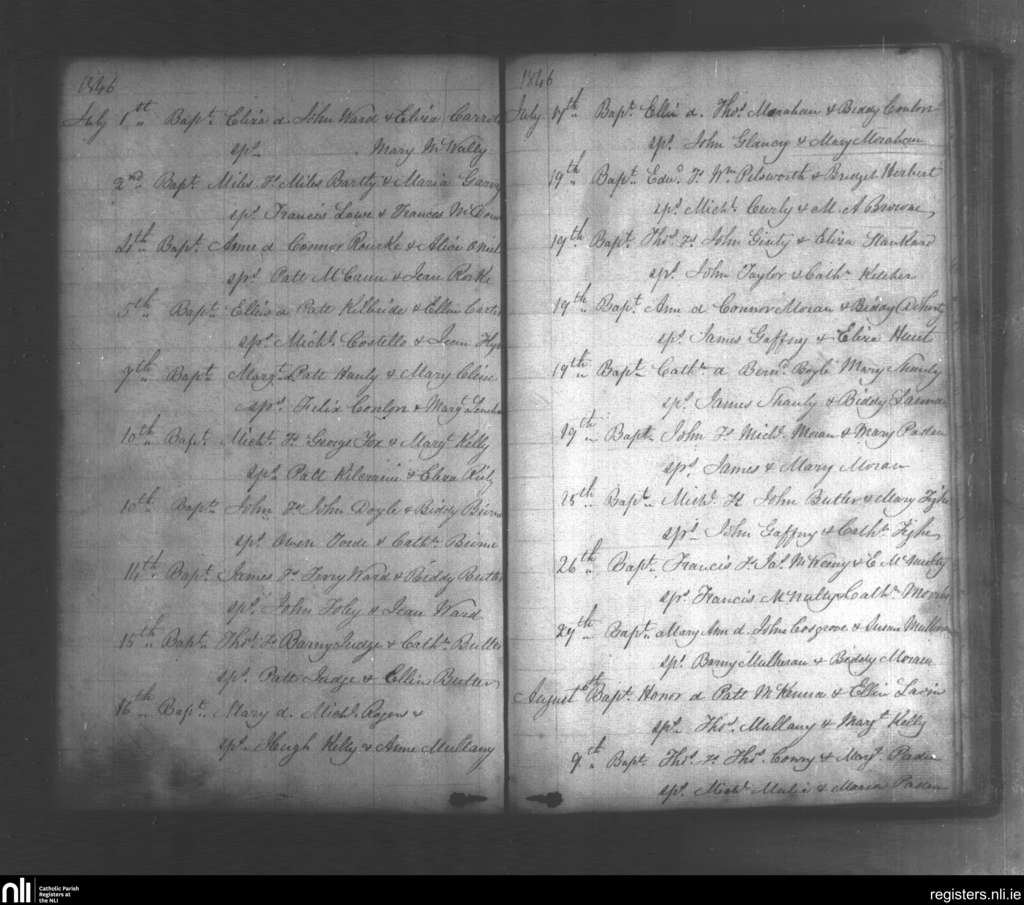 1846
July 1st Bapt. Eliza d. John Ward & Eliza
sps. Mary McNally
2nd Bapt. Miles Fs Miles Bartly & Maria
sps. Francis Lowe & Frances
4th Bapt. Anne d Connor Rourke & Alice
sps. Patt McCann & Jean Rorke
5th Bapt. Ellen d Patt Kilbride & Ellen
sps. Michl. Costello & Jean
7th Bapt. Margt. d Patt Hanly & Mary Cline
sps. Felix Conlon & Margt.
10th Bapt. Michl. Fs George Fox & Margt. Kelly
sps. Patt Kilcraine & Eliza
10th Bapt. John Fs John Doyle & Biddy Beirne
sps. Owen Forde & Cathn. Beirne
14th Bapt. James Fs Terry Ward & Biddy Butler
sps. John Foley & Jean Ward
15th Bapt. Thos. Fs Barny Judge & Cathn. Butler
sps. Patt Judge & Ellen Butler
16th Bapt. Mary d. Michl. Rogers &
sps. Hugh Kelly & Anne Mullany
1846
July 17th Bapt. Ellen d. Thos. Morahan & Biddy Conlon
sps. John Glancy & Mary Morahan
19th Bapt. Edwd. Fs Wm Pilsworth & Bridget Herbert
sps. Michl. Curly & M. A Browne
19th Bapt. Thos. Fs John Ginty & Eliza Hankard
sps. John Taylor & Cathn. Keleher
19th Bapt. Ann d Connor Moran & Biddy
sps. James Gaffny & Eliza Hunt
19th Bapt. Cathn. d Bernd. Boyle Mary Shanly
sps. James Shanly & Biddy
19th Bapt. John Fs Michl. Moran & Mary Paden
sps. James & Mary Moran
25th Bapt. Michl. Fs John Butler & Mary Fighe
sps. John Gaffny & Cathn. Fighe
26th Bapt. Francis Fs Jas. & E McNulty
sps. Francis McNulty & Cathn. Morris
27th Bapt. Mary Ann d. John Cosgrove & Susan
sps. Barny Mulleran & Biddy Moran
August 6th Bapt. Honor d Patt McKenna & Ellen Lavin
sps. Thos. Mullany & Margt. Kelly
9th Bapt. Thos. Fs Thos. Conry & Margt. Paden
sps. Michl. & Maria Paden
nli
Catholic Parish
Registers at
the NLI
registers.nli.ie